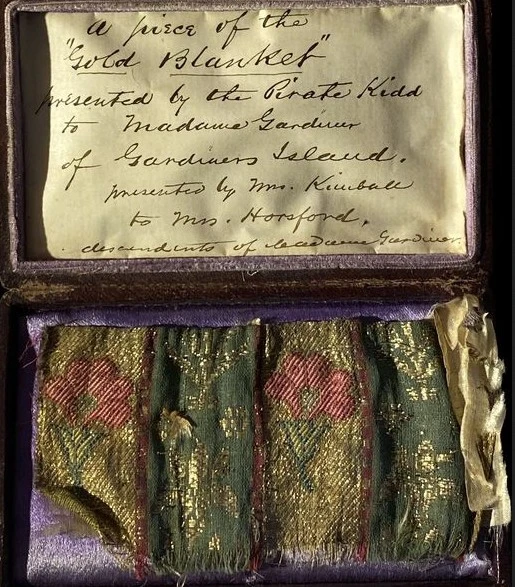 A piece of the
"Gold Blanket"
presented by the Pirate Kidd
to Madame Gardiner
of Gardiners Island.
presented by Mrs. Kimball
to Mrs. Horsford,
descendents of Madame Gardiner.